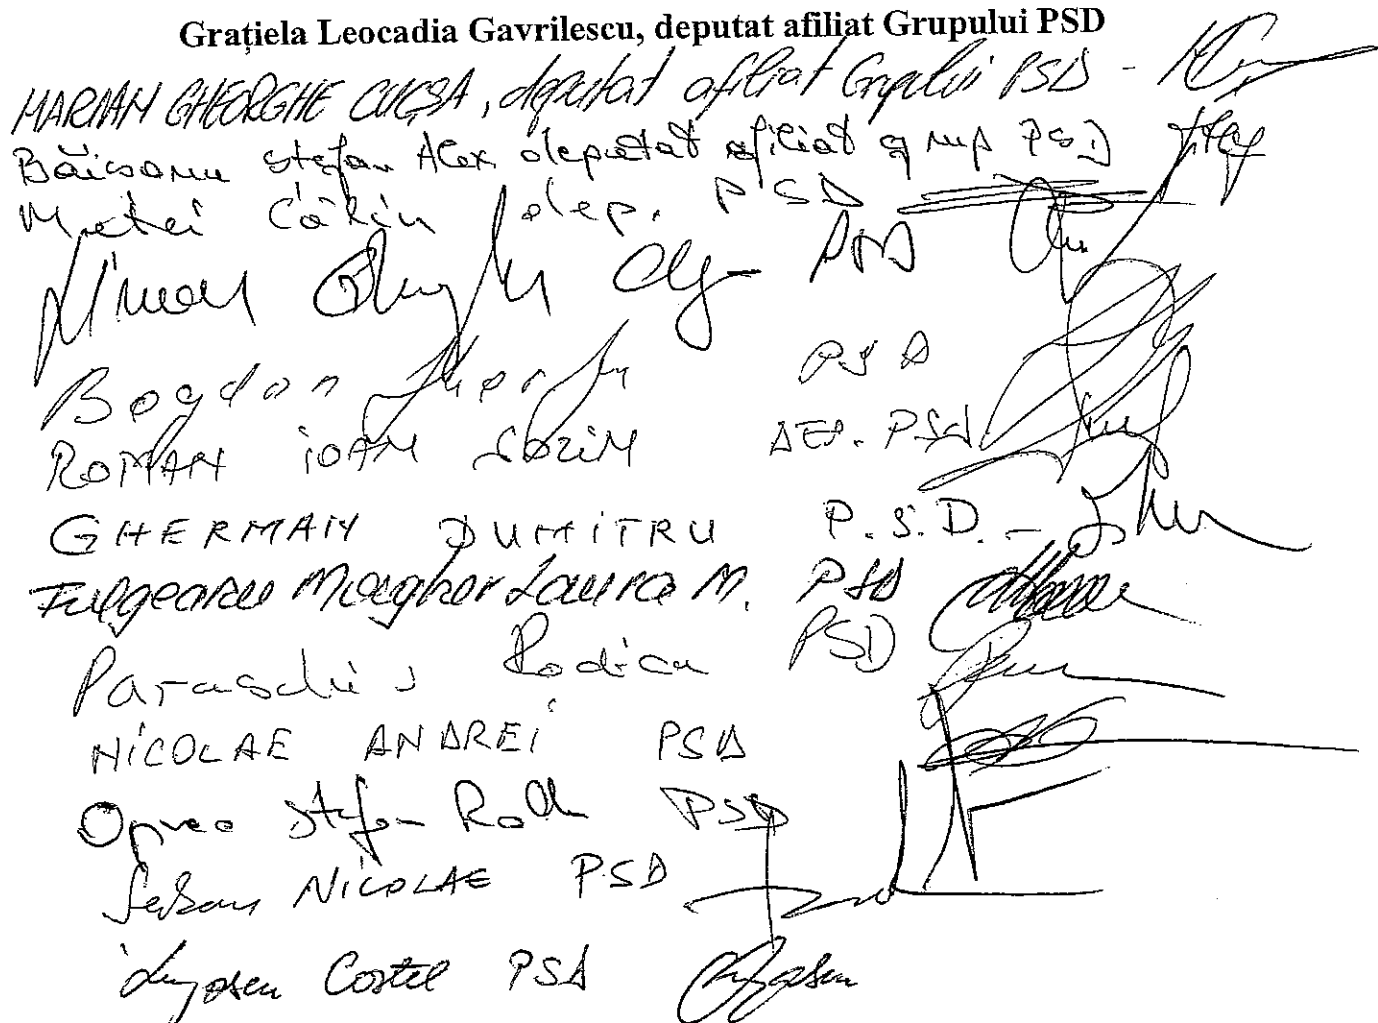 Grațiela Leocadia Gavrilescu, deputat afiliat Grupului PSD
MARIAN GHEORGHE CUCȘA, deputat afiliat Grupului PSD -
Băișanu Ștefan Alex deputat afiliat grup PSD
Matei Călin dep. PSD
PSD
Bogdan PSD
ROMAN IOAN SORIN DEP. PSD.
GHERMAN DUMITRU P.S.D. -
Fulgeanu Moagher Laura M. PSD
Paraschiv Rodica PSD
NICOLAE ANDREI PSD
Oprea Ștefan Radu PSD
Șerban NICOLAE PSD
Lungoseu Costel PSD